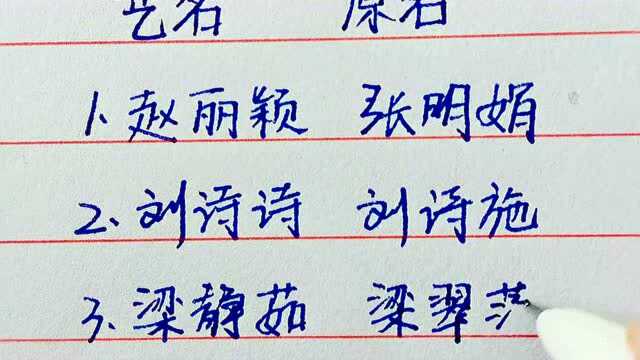 艺名 原名
1、赵丽颖 张明娟
2、刘诗诗 刘诗施
3、梁静茹 梁翠